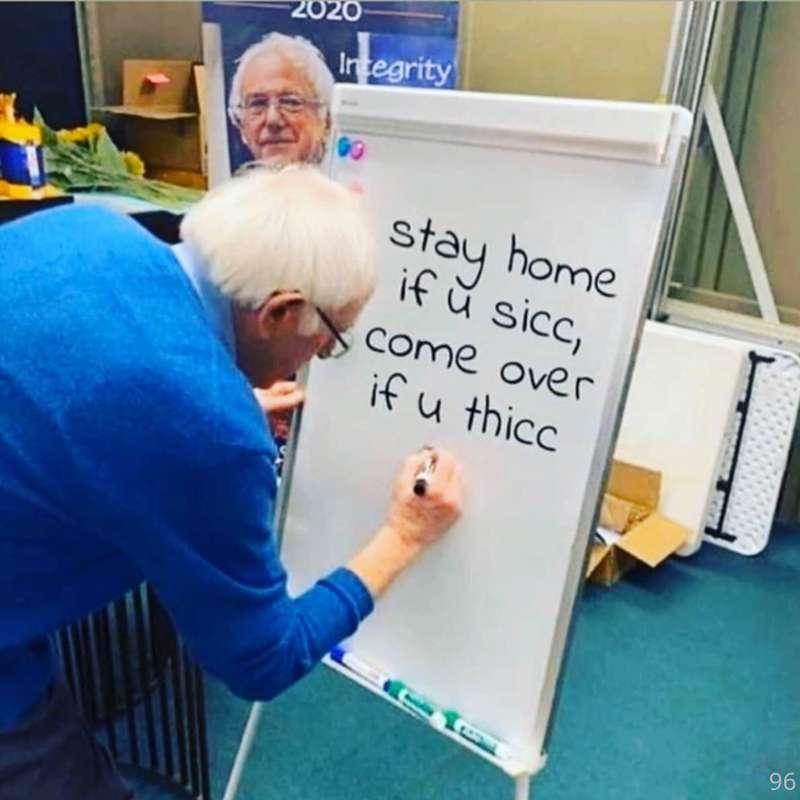 2020
Integrity
stay home
if u sicc,
come over
if u thicc
96